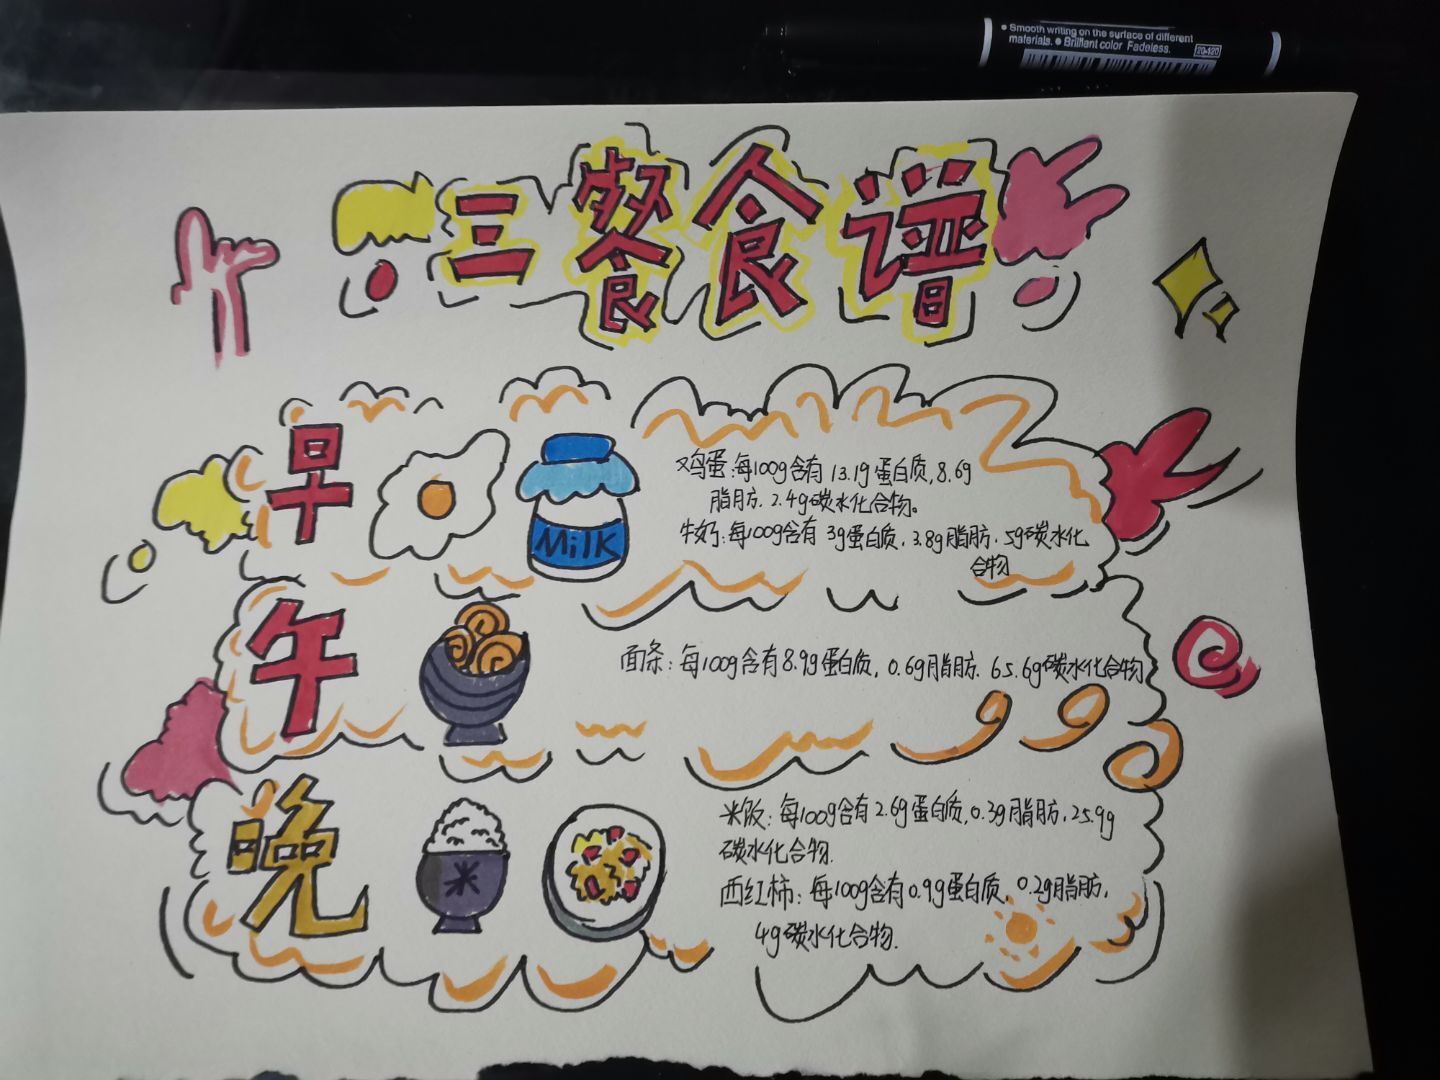 Smooth writing on the surface of different
materials. Brilliant color Fadeless.
三餐食谱
早
Milk
鸡蛋:每100g含有13.1g蛋白质,8.6g
脂肪、2.4g碳水化合物。
牛奶:每100g含有 3g蛋白质、3.8g脂肪、5g碳水化
合物
午
面条:每100g含有8.9g蛋白质,0.6g脂肪、65.6g碳水化合物
晚
米
米饭:每100g含有2.6g蛋白质,0.3g脂肪,25.9g
碳水化合物.
西红柿:每100g含有0.9g蛋白质、0.2g脂肪,
4g碳水化合物.